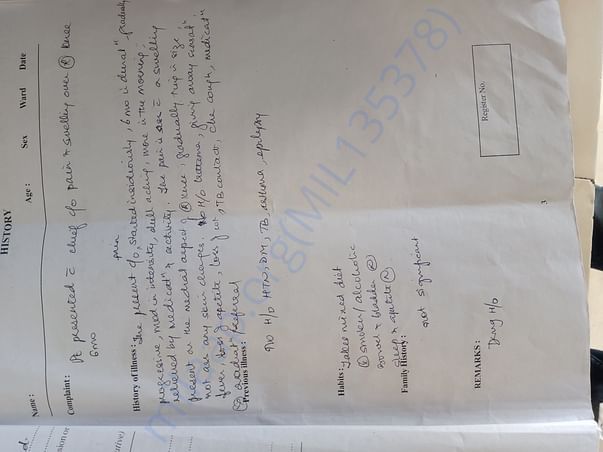 HISTORY
Name :
Age :
Sex
Ward
Date
Complaint : Pt presented c̄ chief c/o pain & swelling over Ⓡ knee
6mo
History of illness : The present c/o pain started insidiously, 6mo in durat" gradually
progressive, mod in intensity, dull aching, more in the morning,
relieved by medicat" & activity. The pain is c̄ a swelling
present on the medial aspect of Ⓡ knee, gradually ↑ing in size
not ass any skin changes. No H/O trauma, giving away sensat",
fever, loss of apetite, loss of wt, TB contact, chr cough, medicat"
Previous illness :
No H/O HTN, DM, TB, asthma, epilepsy
Habits : Takes mixed diet
smoker/alcoholic
Bowel & bladder Ⓝ
sleep & apetite Ⓝ
Family History :
not significant
REMARKS :
Drug H/O
Register No.
3
(MIL135378)